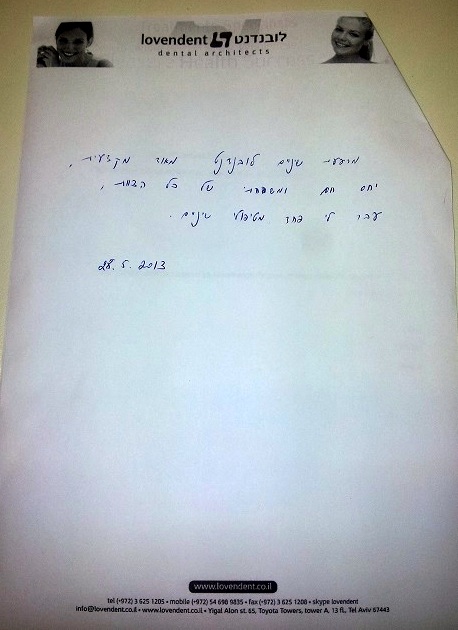 lovendent לובנדנט
dental architects
מרפאת שיניים לובנדנט מאוד מקצועית,
יחס חם ומשפחתי של כל הצוות,
עבר לי פחד מטיפולי שיניים.
28.5.2013
www.lovendent.co.il
tel (+972) 3 625 1205 • mobile (+972) 54 698 9835 • fax (+972) 3 625 1208 • skype lovendent
info@lovendent.co.il • www.lovendent.co.il • Yigal Alon st. 65, Toyota Towers, tower A, 13 fl., Tel Aviv 67443